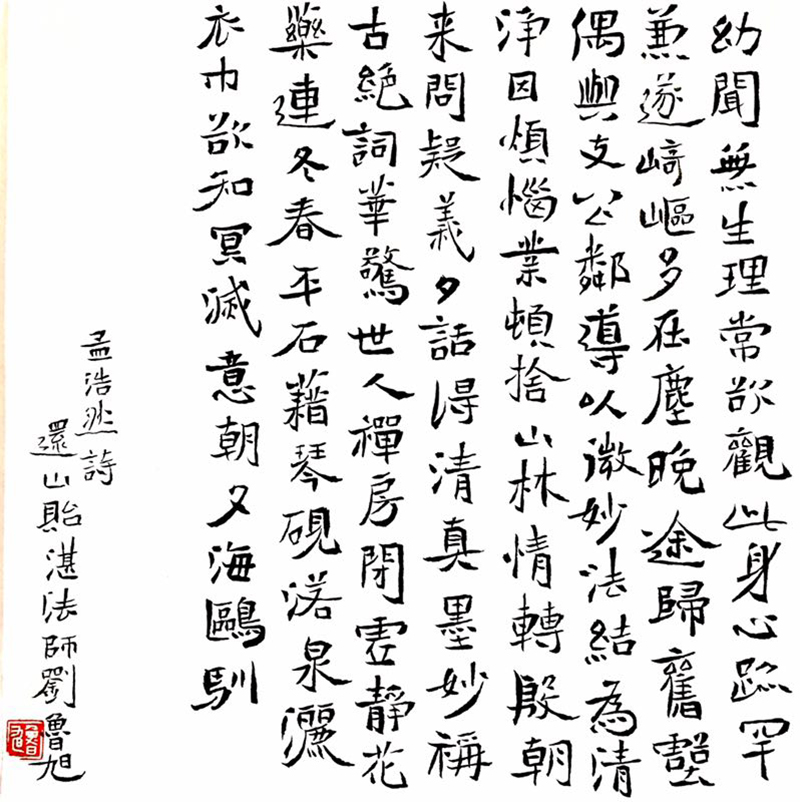 幼聞無生理常欲觀此身心跡罕
兼遂崎嶇多在塵晚途歸舊壑
偶與支公鄰導以微妙法結為清
淨因煩惱業頓捨山林情轉殷朝
来問疑義夕話得清真墨妙稱
古絕詞華驚世人禪房閉虛靜花
藥連冬春平石藉琴硯落泉灑
衣巾欲知冥滅意朝夕海鷗馴
孟浩然詩
還山貽湛法師劉魯旭